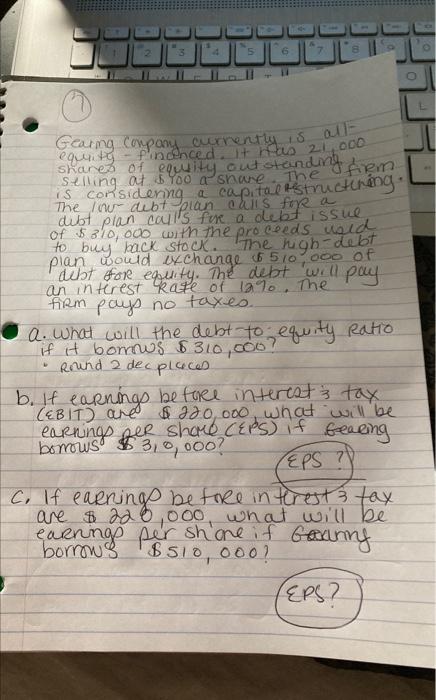 1 2 3 4 5 6 7 8
L
7
Gearing Company currently is all-
equity-financed. It has 21,000
shares of equity outstanding,
selling at $100 a share. The firm
is considering a capital restructuring.
The low-debt plan calls for a
debt plan calls for a debt issue
of $310,000 with the proceeds used
to buy back stock. The high-debt
plan would exchange $510,000 of
debt for equity. The debt will pay
an interest rate of 12%. The
firm pays no taxes.
a. what will the debt-to-equity Ratio
if it borrows $310,000?
• Round 2 dec places
b. If earnings before interest & tax
(EBIT) are $220,000, what will be
earnings per share (EPS) if Gearing
borrows $310,000?
EPS ?
C. If earnings before interest & tax
are $220,000, what will be
earnings per share if Gearing
borrows $510,000?
EPS?